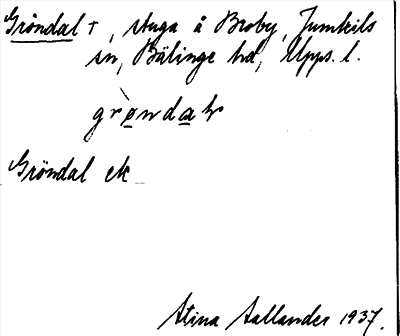 Gröndal †, stuga å Broby, Jumkils
sn, Bälinge hd, Upps. l.
grøndaɫ
Gröndal ek
Stina Aallander 1937.